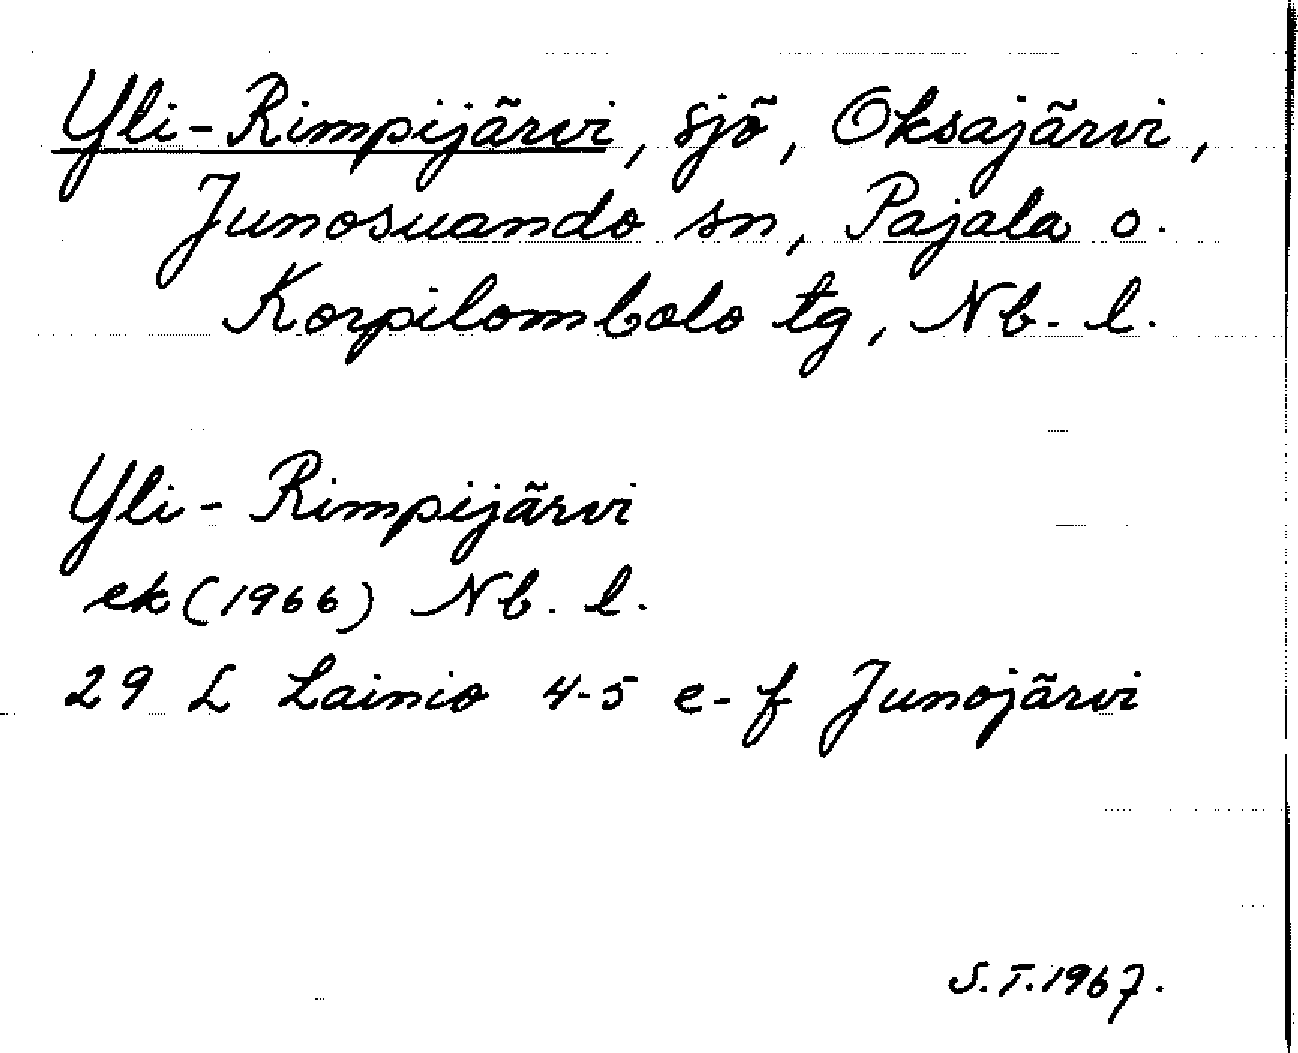 Yli-Rimpijärvi, sjö, Oksajärvi,
Junosuando sn, Pajala o.
Korpilombolo tg, Nb. l.
Yli-Rimpijärvi
ek (1966) Nb. l.
29 L Lainio 4-5 e-f Junojärvi
S.T. 1967.